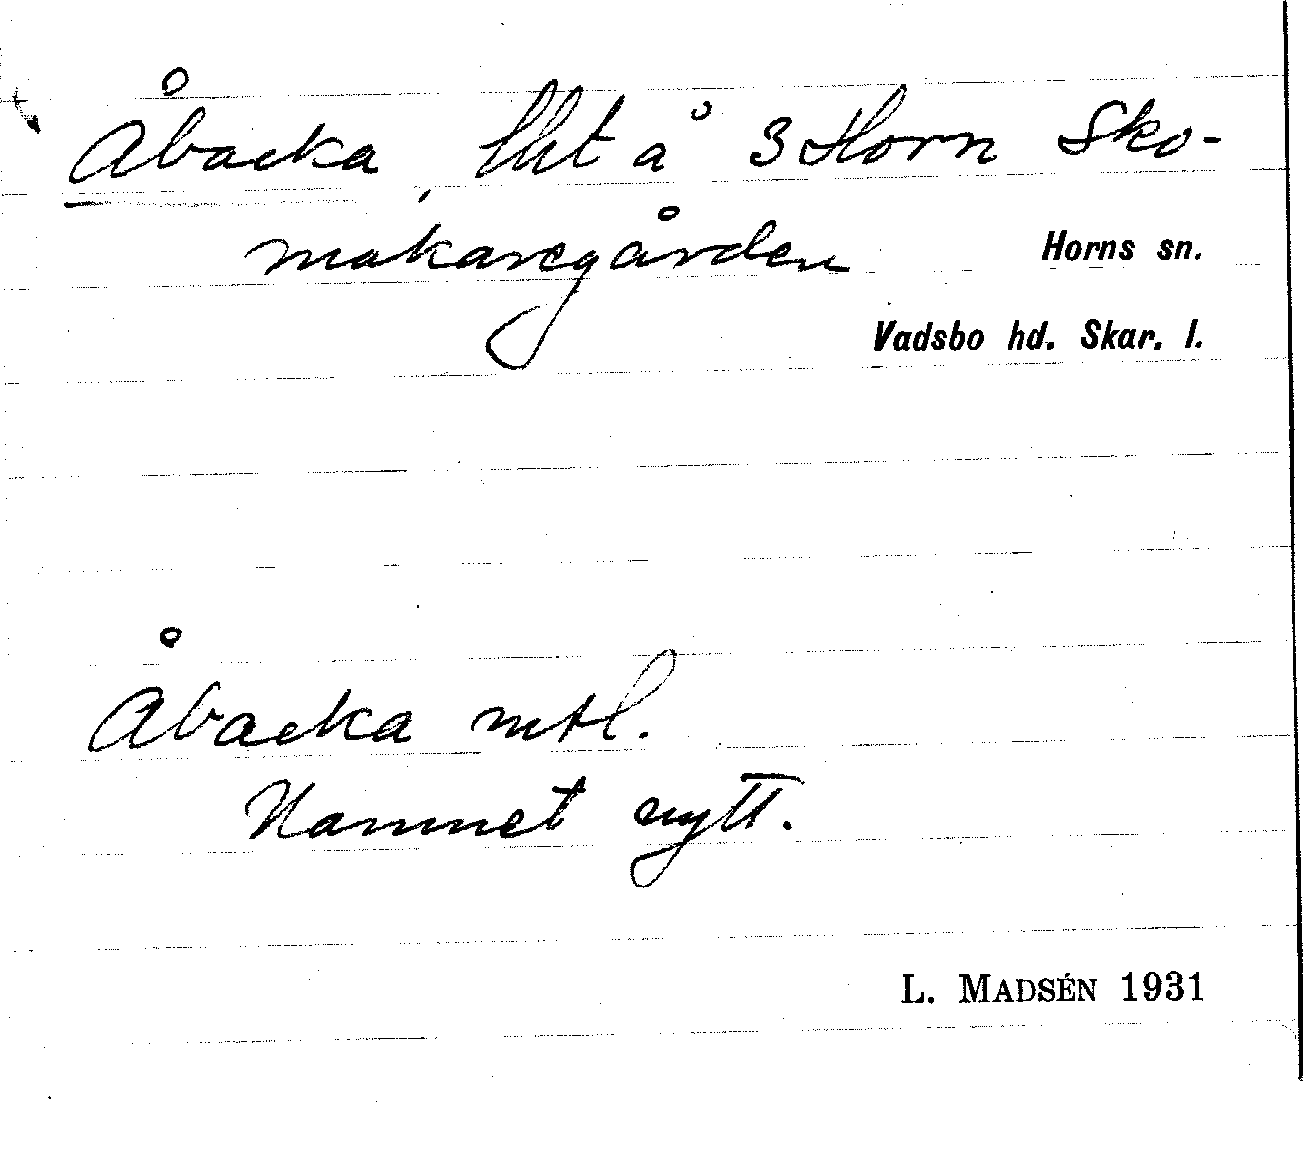 Åbacka, lht å 3 Horn Sko-
makaregården
Horns sn.
Vadsbo hd. Skar. l.
Åbacka mtl.
Namnet nytt.
L. MADSÉN 1931